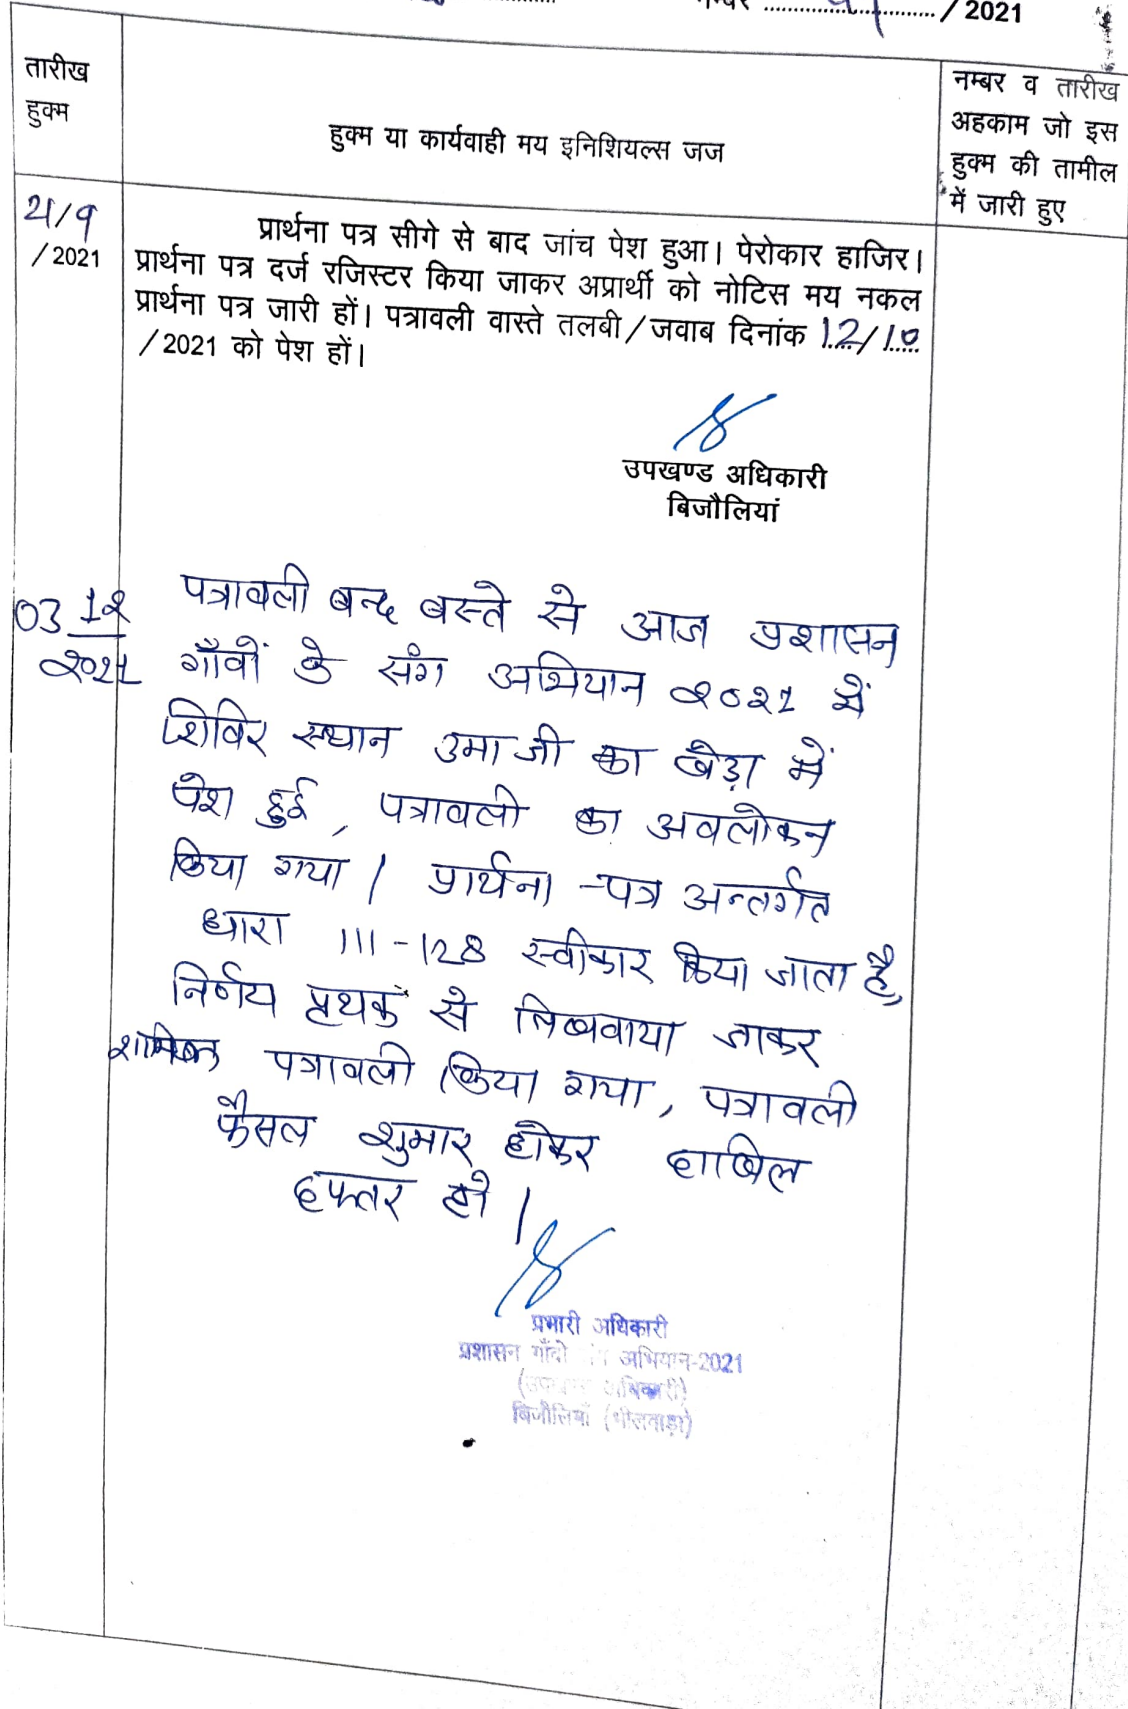 / 2021
तारीख
हुक्म
हुक्म या कार्यवाही मय इनिशियल्स जज
नम्बर व तारीख
अहकाम जो इस
हुक्म की तामील
में जारी हुए
21/9
/ 2021
प्रार्थना पत्र सीगे से बाद जांच पेश हुआ। पेरोकार हाजिर।
प्रार्थना पत्र दर्ज रजिस्टर किया जाकर अप्रार्थी को नोटिस मय नकल
प्रार्थना पत्र जारी हों। पत्रावली वास्ते तलबी/जवाब दिनांक 12/10
/2021 को पेश हों।
उपखण्ड अधिकारी
बिजौलियां
03 12
2021
पत्रावली बन्द बस्ते से आज प्रशासन
गाँवों के संग अभियान 2021 में
शिविर स्थान उमा जी का खेड़ा में
पेश हुई, पत्रावली का अवलोकन
किया गया। प्रार्थना-पत्र अन्तर्गत
धारा 111-128 स्वीकार किया जाता है,
निर्णय पृथक से लिखवाया जाकर
शामिल पत्रावली किया गया, पत्रावली
फैसल शुमार होकर दाखिल
दफ्तर हो।
प्रभारी अधिकारी
प्रशासन गाँवो अभियान-2021
अधिकारी)
बिजौलियां (भीलवाड़ा)